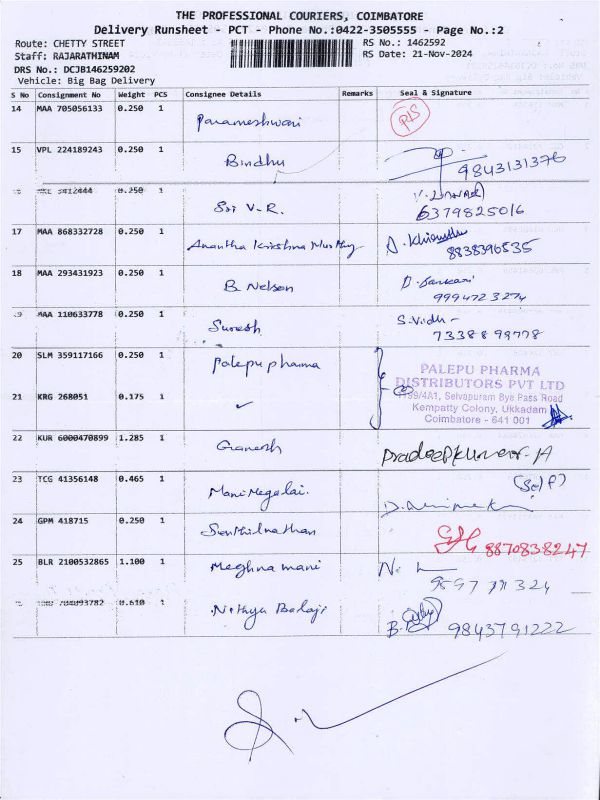 THE PROFESSIONAL COURIERS, COIMBATORE
Delivery Runsheet - PCT - Phone No.:0422-3505555 - Page No.:2
Route: CHETTY STREET
RS No.: 1462592
Staff: RAJARATHINAM
RS Date: 21-Nov-2024
DRS No.: DCJB146259202
Vehicle: Big Bag Delivery
S No Consignment No Weight PCS Consignee Details Remarks Seal & Signature
14 MAA 705056133 0.250 1 Parameshwari
15 VPL 224189243 0.250 1 Bindhu
9843131376
0.250 1 Sri V.R.
6379825016
17 MAA 868332728 0.250 1 Anantha Krishna Murthy
8838396535
18 MAA 293431923 0.250 1 B. Nelson D. Sankari
9994723274
MAA 110633778 0.250 1 Suresh S. Vidh
20 SLM 359117166 0.250 1 Palepu pharma
PALEPU PHARMA
DISTRIBUTORS PVT LTD
21 KRG 268051 0.175 1 ✓
199/4A1, Selvapuram Bye Pass Road
Kempatty Colony, Ukkadam
Coimbatore - 641 001
22 KUR 6000470899 1.285 1 Ganesh
Pradeepkumar. A
23 TCG 41356148 0.465 1 Mani Megalai.
(Self)
24 GPM 418715 0.250 1 Senthilnathan
8870838247
25 BLR 2100532865 1.100 1 Meghna mani
0.610 1 Nithya Balaji
B. 9843791222